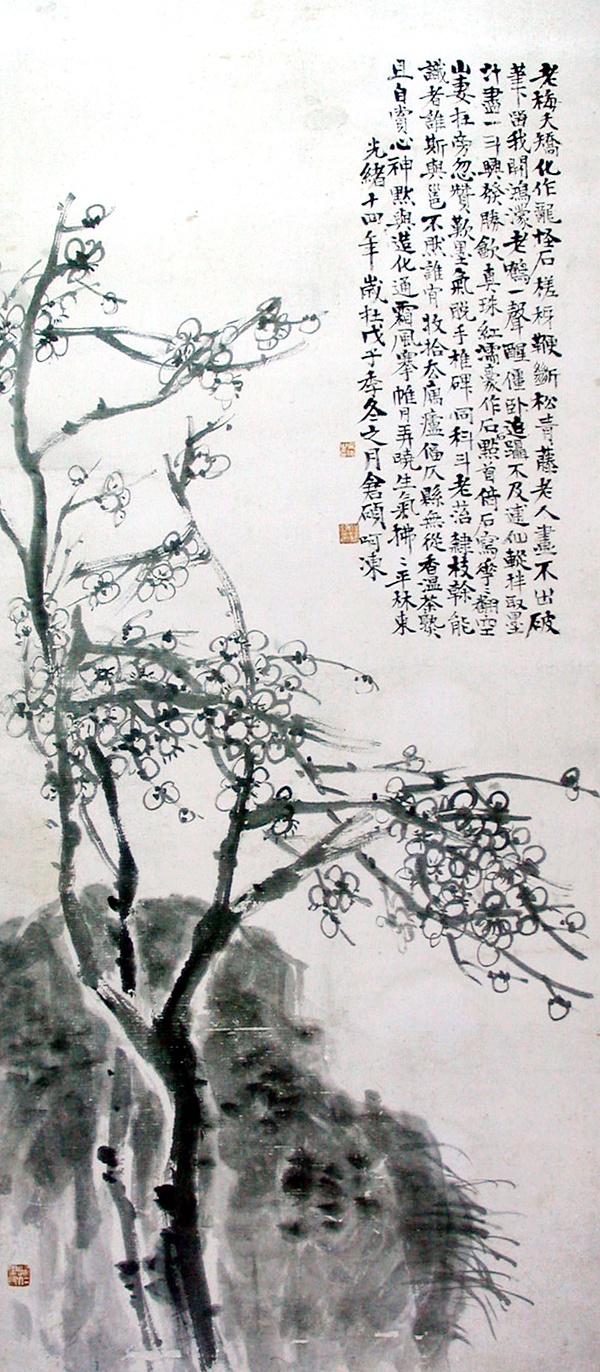 老梅夭矯化作龍怪石槎枒鞭斷松青藤老人畫不出破
筆留我開鴻濛老鶴一聲醒僵卧追躡不及逢仙蹤拌取墨
汁盡一斗興發勝飲真珠紅濡豪作石點首倚石寫花翻空
山妻在旁忽贊歎墨氣脫手椎碑同科斗老苔隸枝幹能
識者誰斯與邕不然誰肯收拾去寓廬逼仄縣無從香溫茶熟
且自賞心神默與造化通霜風搴帷月弄曉生氣拂拂平林東
光緒十四年歲在戊子季冬之月倉碩呵凍